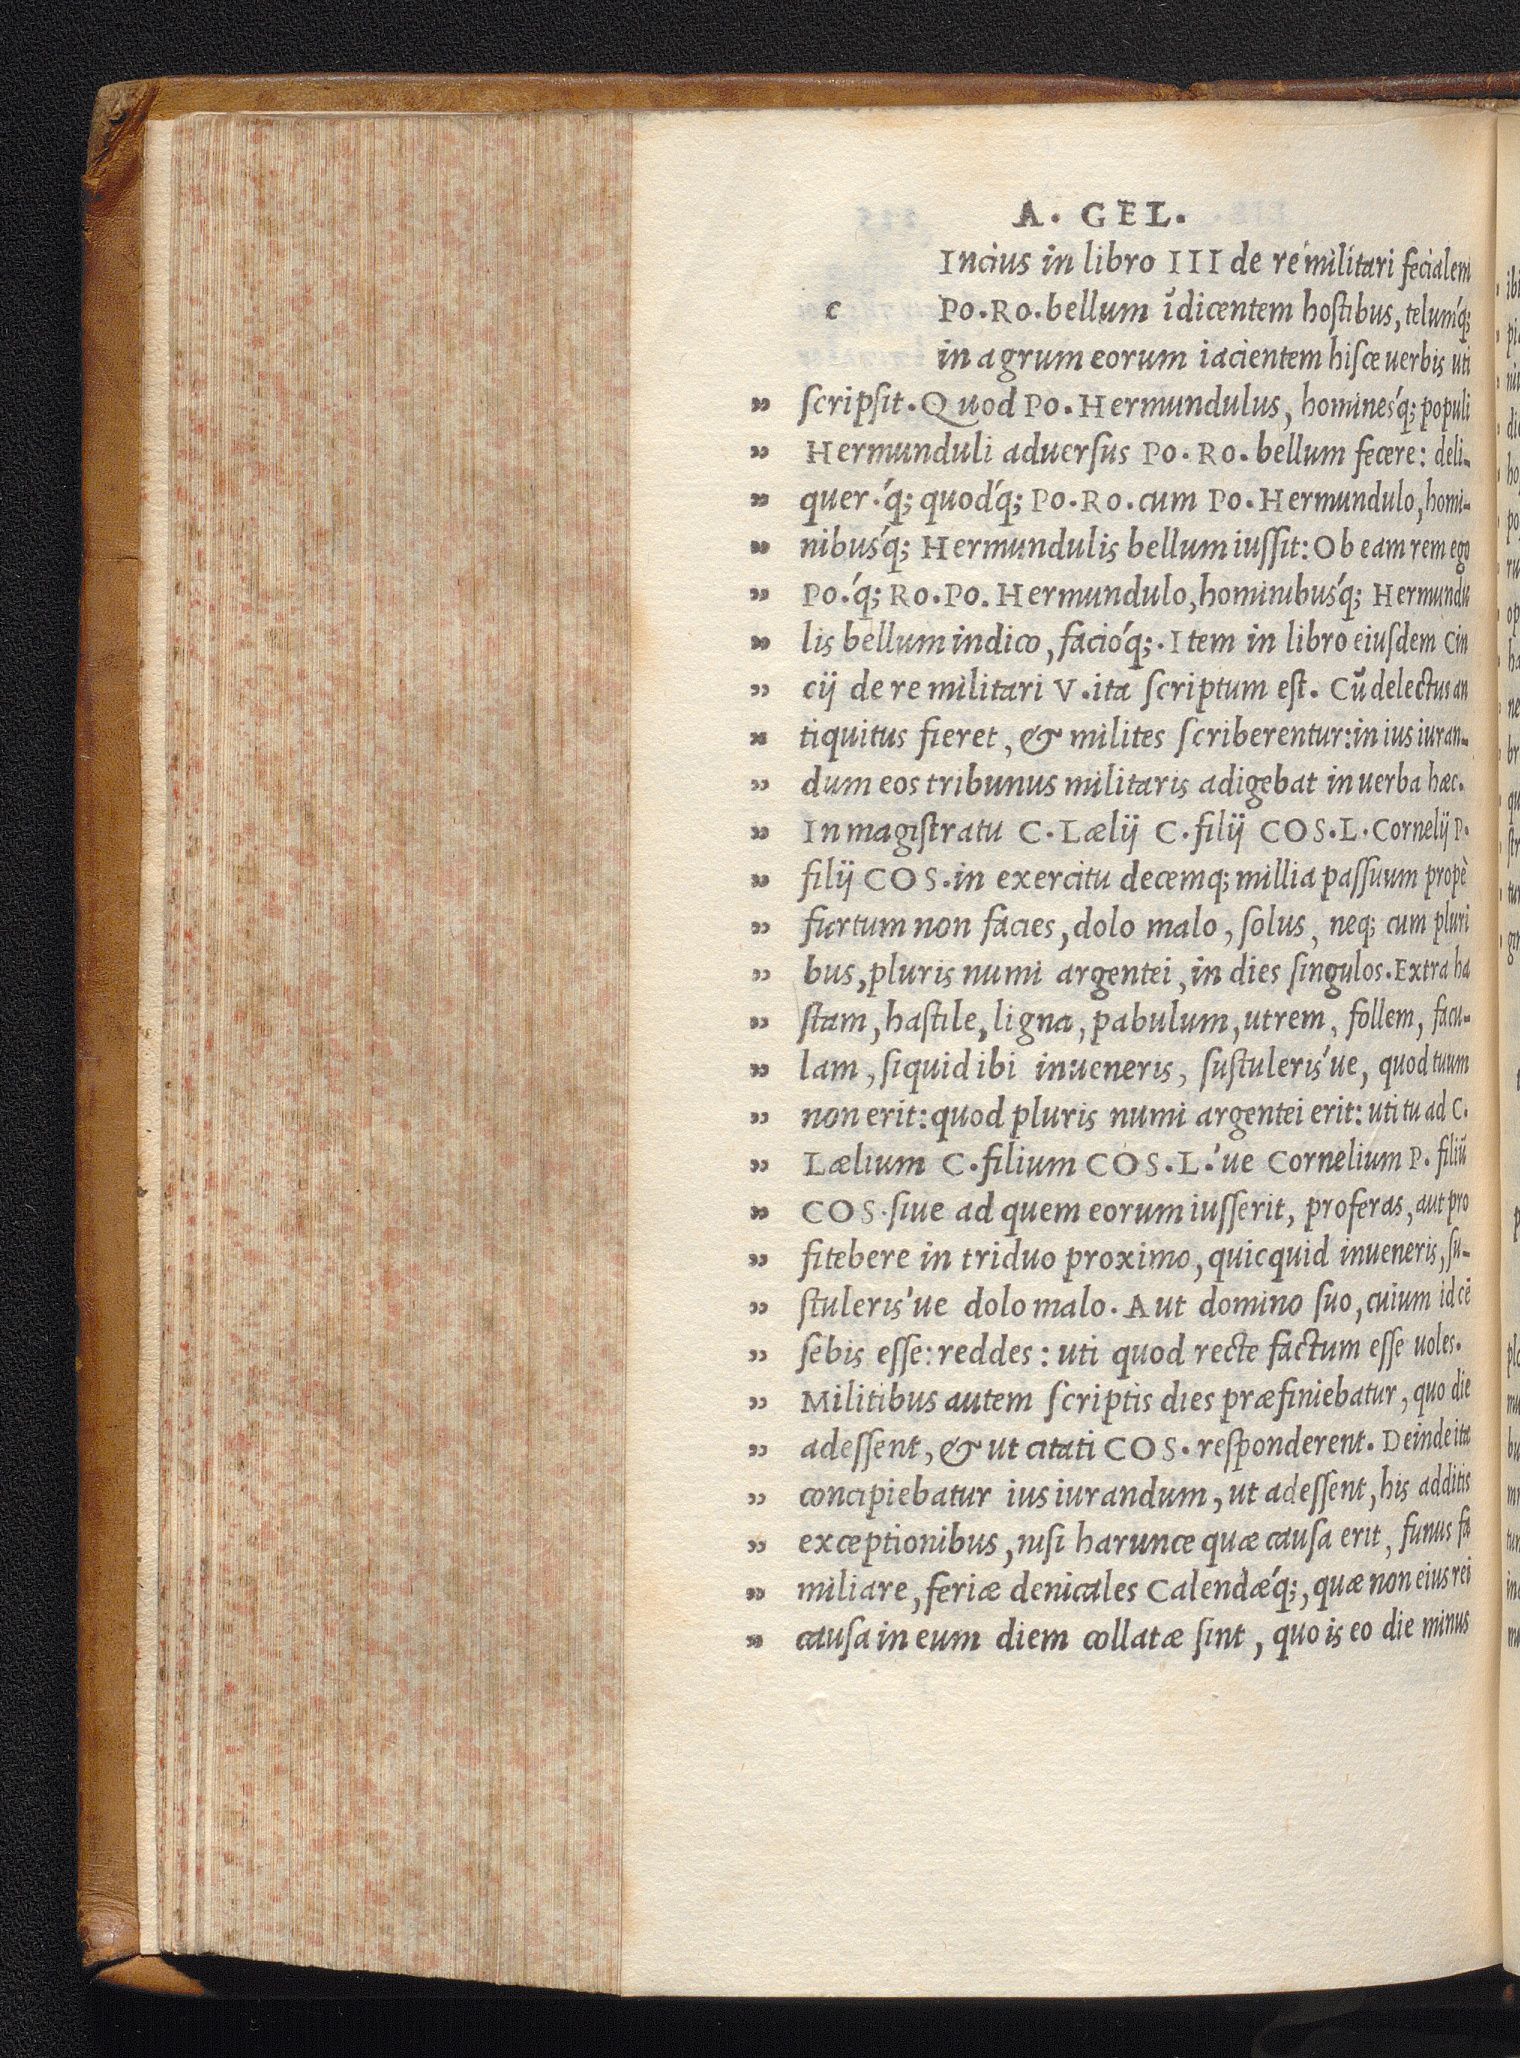 A. GEL.
Incius in libro III de re militari fecialem
c Po.Ro.bellum īdicentem hostibus, telumq́;
in agrum eorum iacientem hisce uerbis uti
„ scripsit. Quod Po. Hermundulus, hominesq́; populi
„ Hermunduli aduersus Po. Ro. bellum fecere: deli-
„ quer.q́; quodq́; Po.Ro.cum Po.Hermundulo, homi-
„ nibusq́; Hermundulis bellum iussit: Ob eam rem ego
„ Po.q́; Ro.Po. Hermundulo, hominibusq́; Hermundu
„ lis bellum indico, facioq́;. Item in libro eiusdem Cin
„ cij de re militari V.ita scriptum est. Cū delectus an
„ tiquitus fieret, & milites scriberentur: in ius iuran-
„ dum eos tribunus militaris adigebat in uerba hæc.
„ In magistratu C. Lælij C. filij COS.L. Cornelij P.
„ filij COS.in exercitu decemq; millia passuum propè
„ furtum non facies, dolo malo, solus, neq; cum pluri
„ bus, pluris numi argentei, in dies singulos. Extra ha
„ stam, hastile, ligna, pabulum, utrem, follem, facu-
„ lam, siquid ibi inueneris, sustuleris'ue, quod tuum
„ non erit: quod pluris numi argentei erit: uti tu ad C.
„ Lælium C. filium COS.L.'ue Cornelium P. filiū
„ COS.siue ad quem eorum iusserit, proferas, aut pro
„ fitebere in triduo proximo, quicquid inueneris, su-
„ stuleris'ue dolo malo. Aut domino suo, cuium id cē
„ sebis esse: reddes: uti quod recte factum esse uoles.
„ Militibus autem scriptis dies præfiniebatur, quo die
„ adessent, & ut citati COS. responderent. Deinde ita
„ concipiebatur ius iurandum, ut adessent, his additis
„ exceptionibus, nisi harunce quæ causa erit, funus fa
„ miliare, feriæ denicales Calendæq́;, quæ non eius rei
„ causa in eum diem collatæ sint, quo is eo die minus